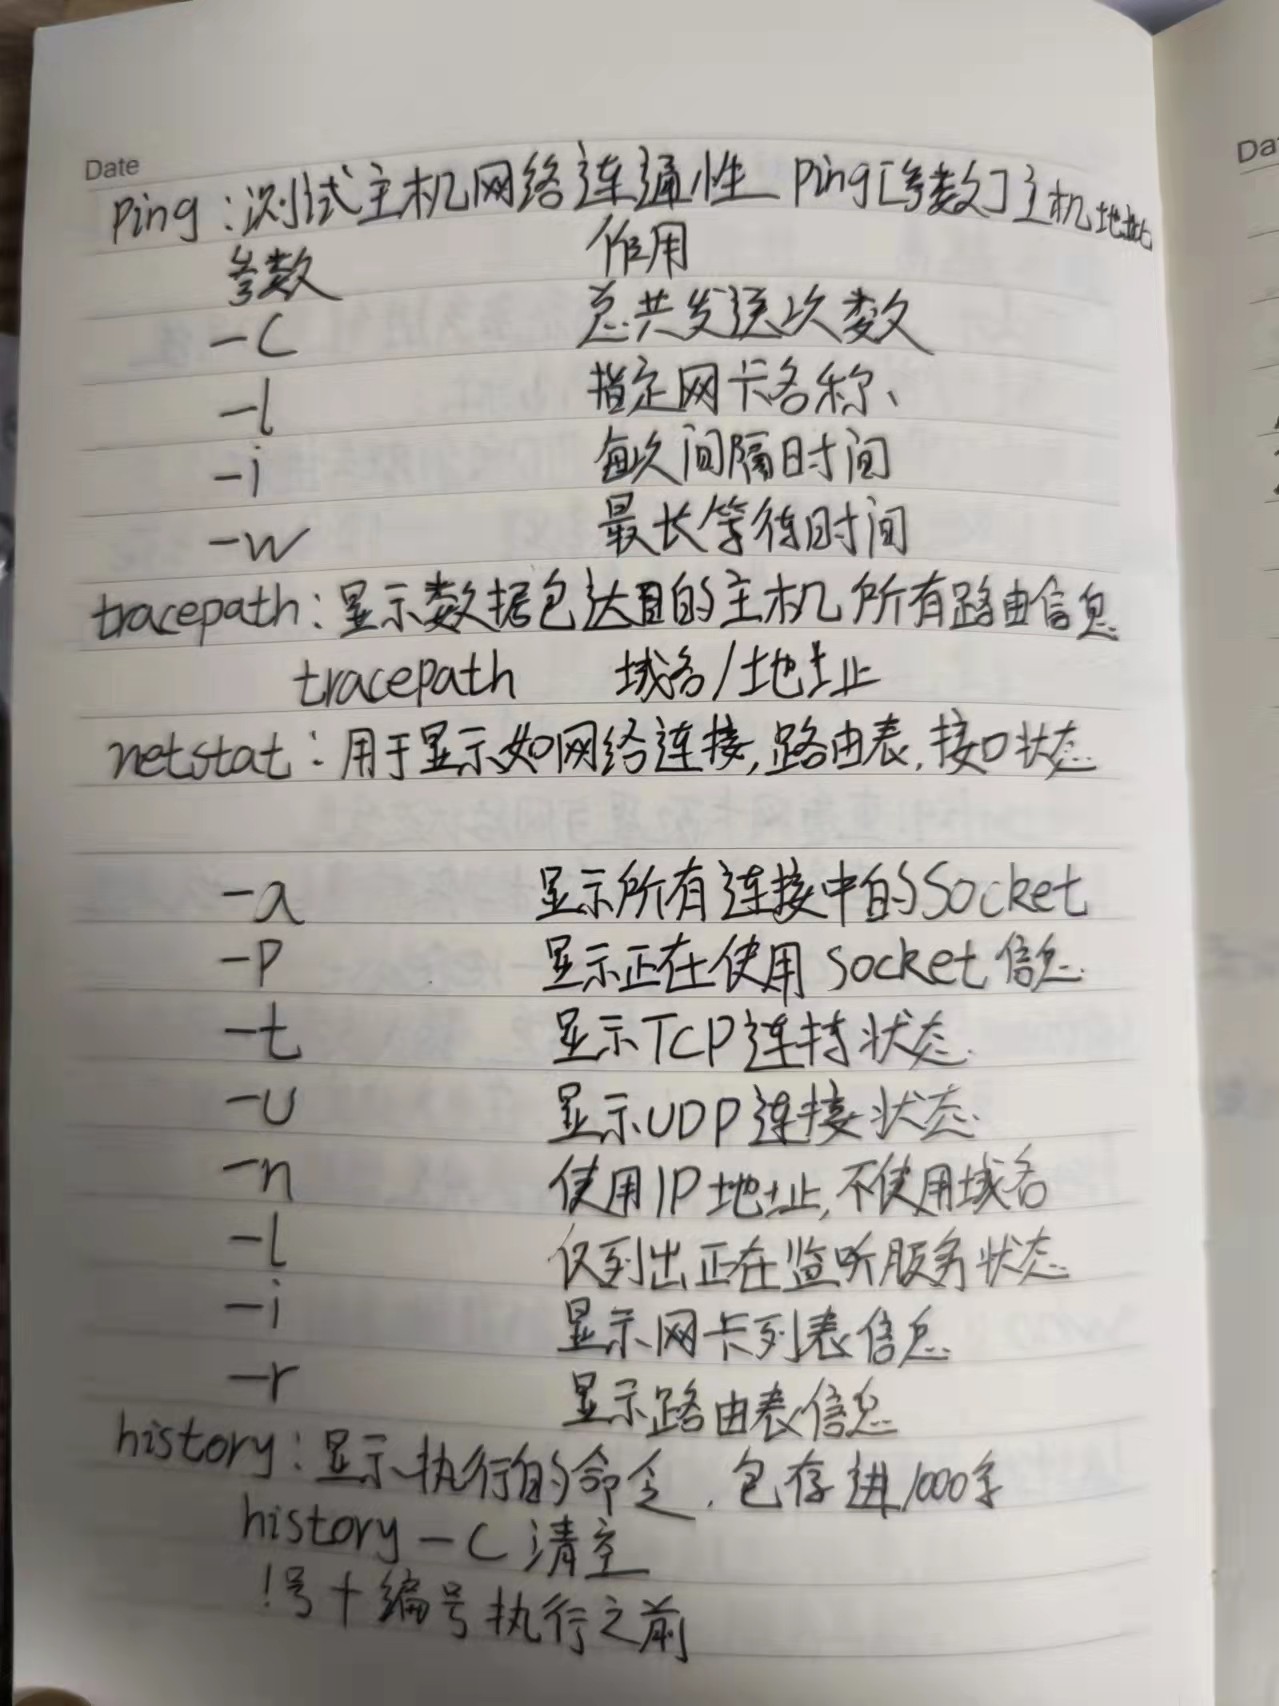 Date
Ping：测试主机网络连通性 Ping[参数]主机地址
参数 作用
-C 总共发送次数
-l 指定网卡名称、
-i 每次间隔时间
-W 最长等待时间
tracepath：显示数据包达目的主机所有路由信息
tracepath 域名/地址
netstat：用于显示如网络连接,路由表,接口状态
-a 显示所有连接中的Socket
-P 显示正在使用socket信息
-t 显示TCP连接状态
-u 显示UDP连接状态
-n 使用IP地址,不使用域名
-l 仅列出正在监听服务状态
-i 显示网卡列表信息
-r 显示路由表信息
history：显示执行的命令,包存进1000条
history -C 清空
!号+编号执行之前